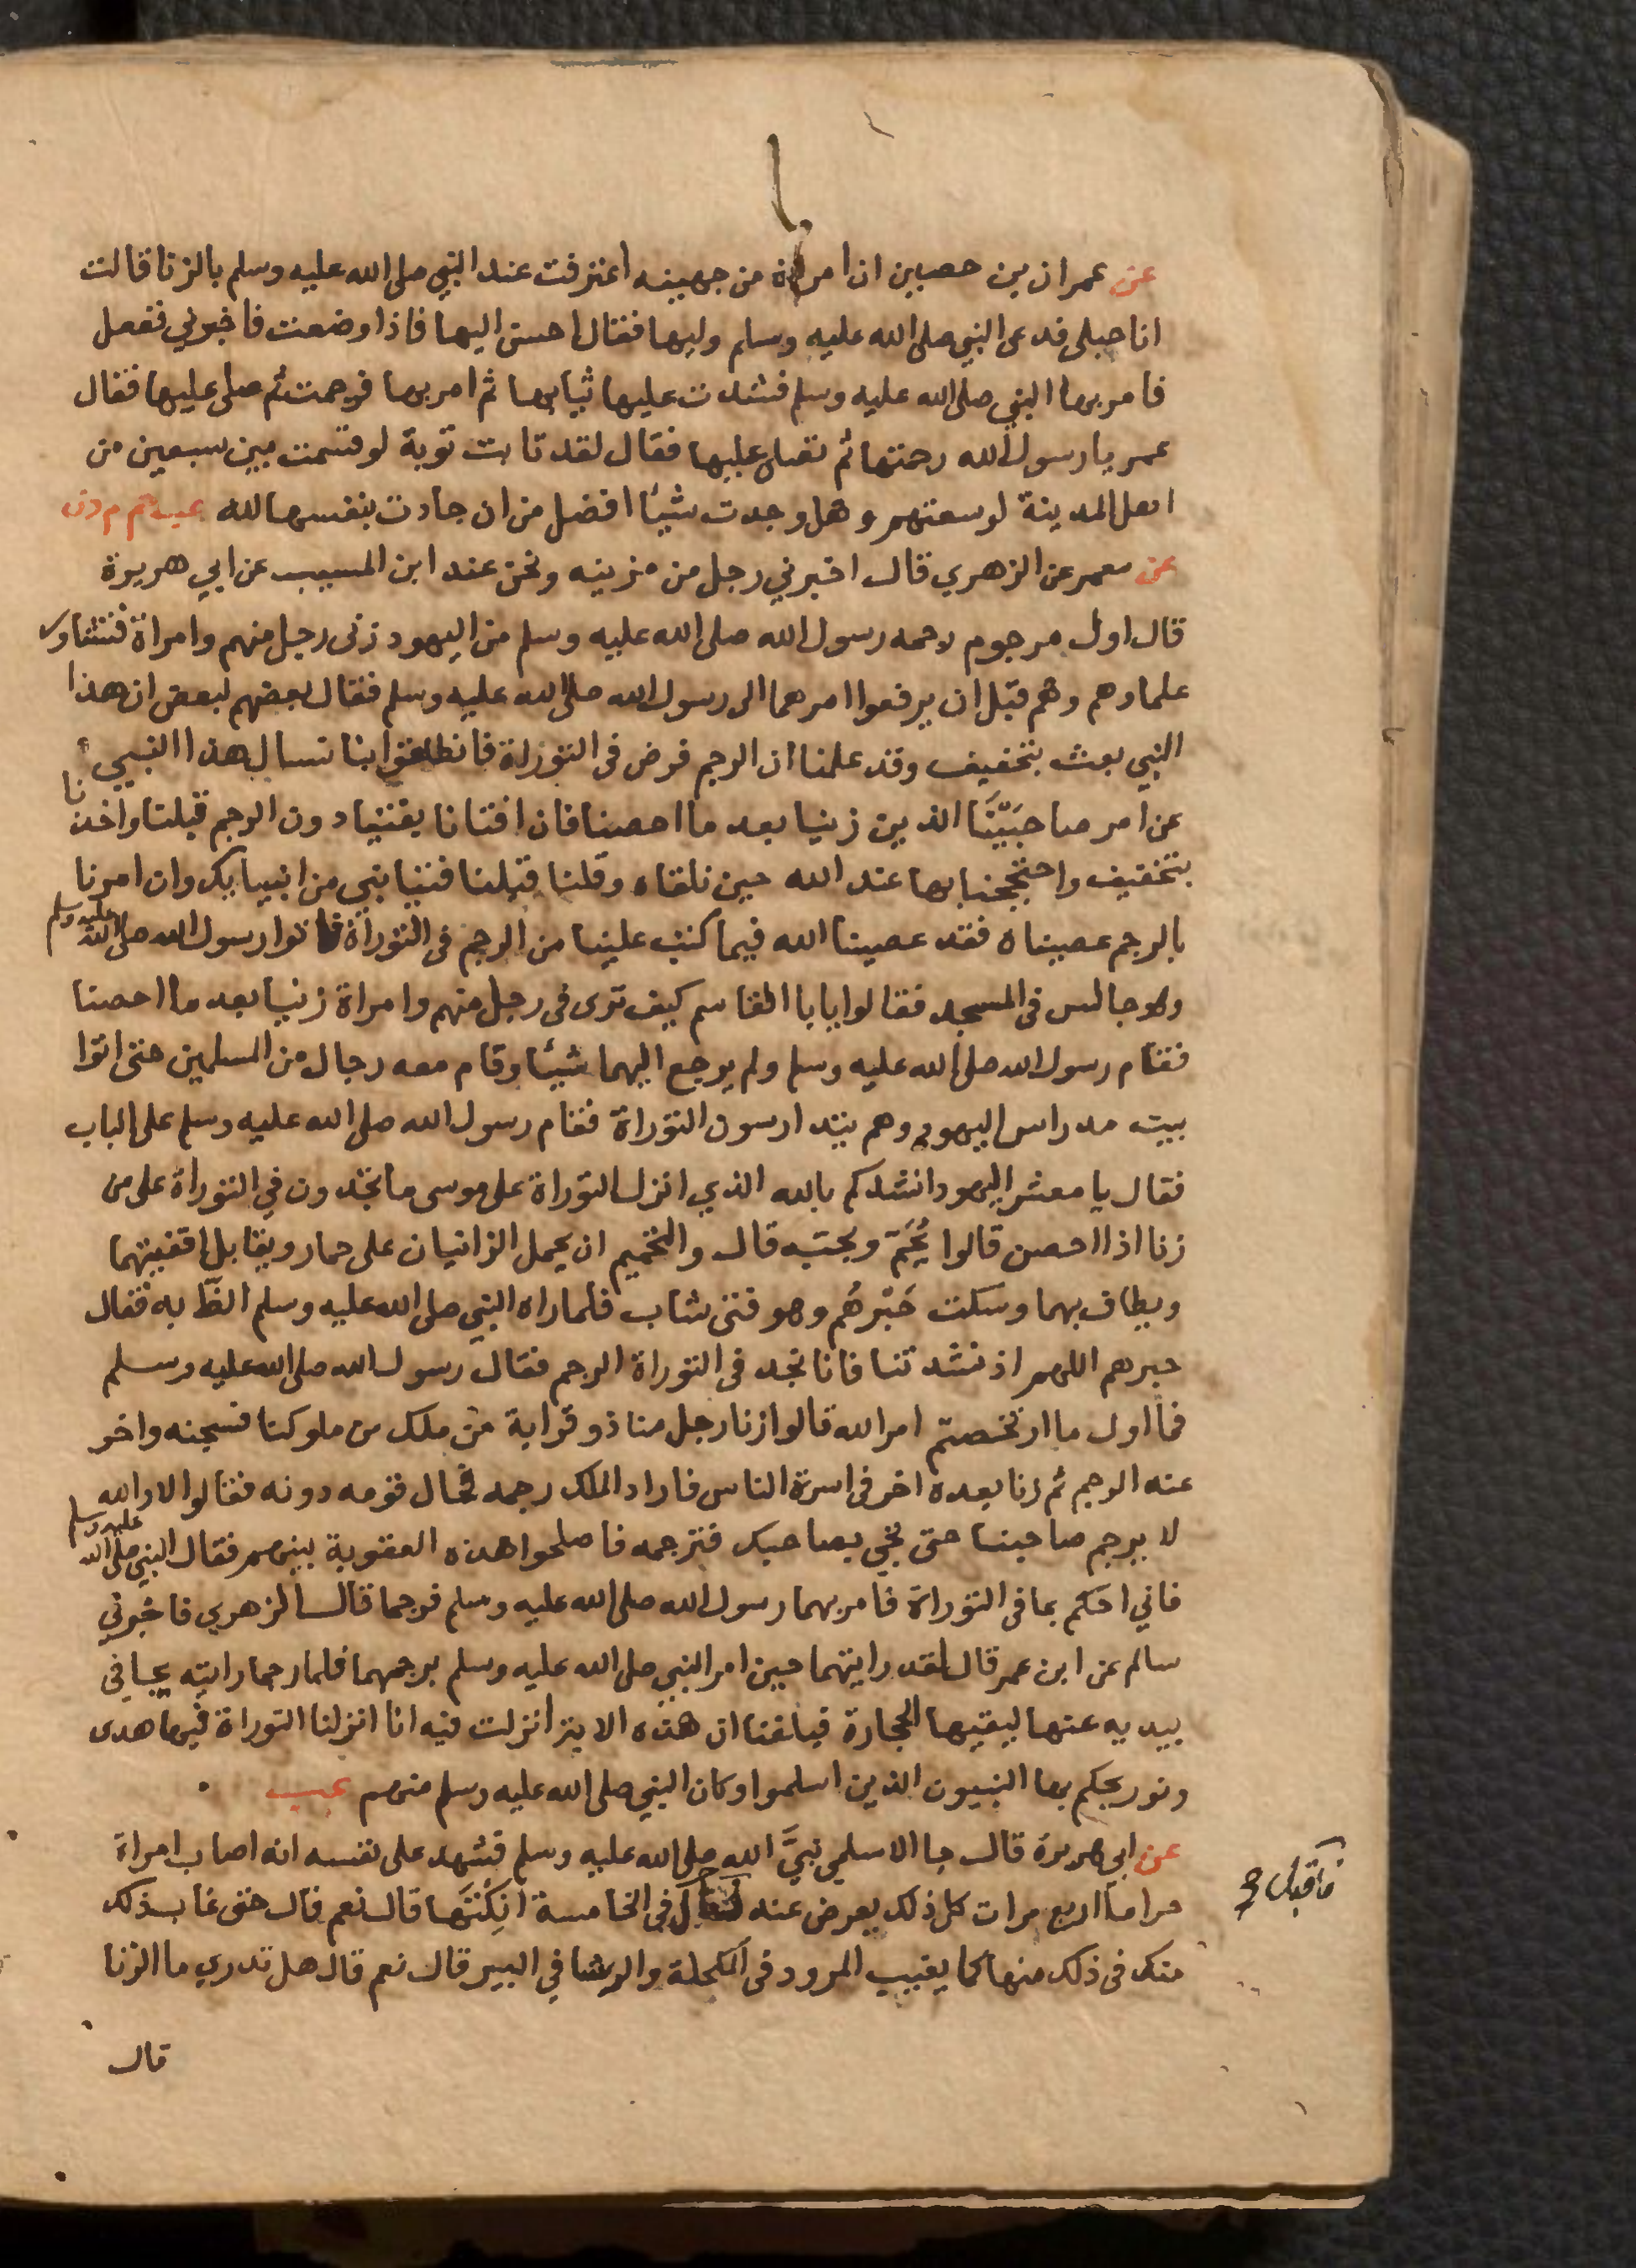 عن عمران بن حصين ان امراة من جهينه اعترفت عند النبي صلى الله عليه وسلم بالزنا قالت
انا حبلى فدعى النبي صلى الله عليه وسلم وليها فقال احسن اليها فاذا وضعت فاخبرني ففعل
فامر بها النبي صلى الله عليه وسلم فشدت عليها ثيابها ثم امر بها فرجمت ثم صلى عليها فقال
عمر يا رسول الله رجمتها ثم تصلى عليها فقال لقد تابت توبة لو قسمت بين سبعين من
اهل المدينة لوسعتهم وهل وجدت شيئا افضل من ان جادت بنفسها لله عب حم م د ن
عن معمر عن الزهري قال اخبرني رجل من مزينه ونحن عند ابن المسيب عن ابي هريرة
قال اول مرجوم رجمه رسول الله صلى الله عليه وسلم من اليهود زنى رجل منهم وامراة فتشاور
علماوهم وهم قبل ان يرفعوا امرهما الى رسول الله صلى الله عليه وسلم فقال بعضهم لبعض ان هذا
النبي بعث بتخفيف وقد علمنا ان الرجم فرض فى التوراة فانطلقوا بنا نسال هذا النبي
عن امر صاحبَيْنَا الذين زنيا بعد ما احصنا فان افتانا بفتيا دون الرجم قبلنا واخذنا
بتخفيف واحتججنا بها عند الله حين نلقاه وقلنا قبلنا فتيا نبي من انبيايك وان امرنا
بالرجم عصيناه فقد عصينا الله فيما كتب علينا من الرجم فى التوراة فاتوا رسول الله صلى الله عليه وسلم
وهو جالس فى المسجد فقالوا يا با القاسم كيف ترى فى رجل منهم وامراة زنيا بعد ما احصنا
فقام رسول الله صلى الله عليه وسلم ولم يرجع اليهما شيئا وقام معه رجال من المسلمين حتى اتوا
بيت مدراس اليهود وهم يتدارسون التوراة فقام رسول الله صلى الله عليه وسلم على الباب
فقال يا معشر اليهود انشدكم بالله الذي انزل التوراة على موسى ما تجدون في التوراة على من
زنا اذا احصن قالوا يُحَمّ ويجبّه قال والتحميم ان يحمل الزانيان على حمار ويقابل اقفيتهما
ويطاف بهما وسكت حَبْرهُم وهو فتى شاب فلما راه النبي صلى الله عليه وسلم الظّ به فقال
حبرهم اللهم اذ نشدتنا فانا نجد فى التوراة الرجم فقال رسول الله صلى الله عليه وسلم
فما اول ما ارتخصتم امر الله قالوا زنا رجل منا ذو قرابة من ملك من ملوكنا فسجنه واخر
عنه الرجم ثم زنا بعده اخر فى اسرة الناس فاراد الملك رجمه فحال قومه دونه فقالوا لا والله
لا يرجم صاحبنا حتى تجي بصاحبك فترجمه فاصلحوا هذه العقوبة بينهم فقال النبي صلى الله عليه وسلم
فاني احكم بما فى التوراة فامر بهما رسول الله صلى الله عليه وسلم فرجما قال الزهري فاخبرني
سالم عن ابن عمر قال لقد رايتهما حين امر النبي صلى الله عليه وسلم برجمهما فلما رجما رايته يجافى
بيديه عنها ليقيها الحجارة فبلغنا ان هذه الاية انزلت فيه انا انزلنا التوراة فيها هدى
ونور يحكم بها النبيون الذين اسلموا وكان النبي صلى الله عليه وسلم منهم عب
عن ابي هريرة قال جا الاسلمي نبيَّ الله صلى الله عليه وسلم فشهد على نفسه انه اصاب امراة
حراما اربع مرات كل ذلك يعرض عنه فى الخامسة انِكْتَها قال نعم قال حتى غاب ذلك
فاقبل صح
منك فى ذلك منها كما يغيب المرود فى المكحلة والرشا في البير قال نعم قال هل تدري ما الزنا
قال